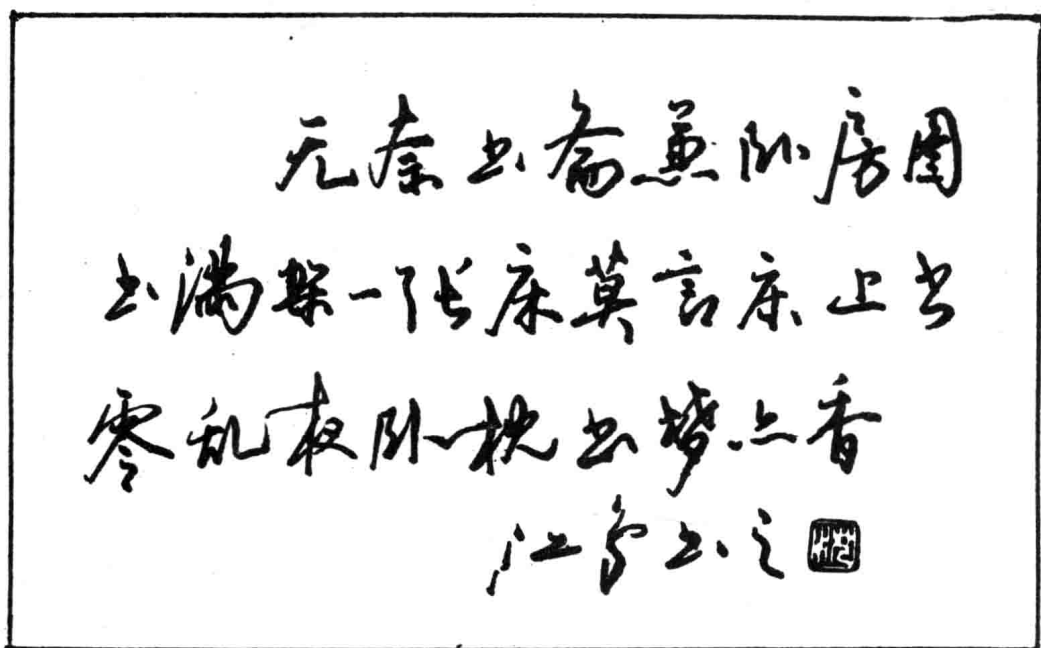 无奈书斋兼卧房图
书满架一张床莫言床上书
零乱权卧枕书梦亦香
江 书之